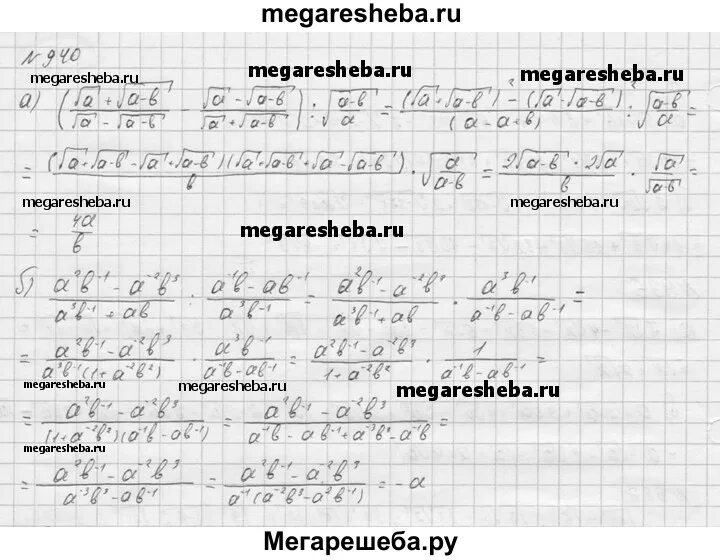 megaresheba.ru
№940
megaresheba.ru megaresheba.ru megaresheba.ru
а) ((√a + √(a-b))/(√a - √(a-b)) - (√a - √(a-b))/(√a + √(a-b))) : √((a-b)/a) = ((√a + √(a-b))² - (√a - √(a-b))²)/(a - a + b) : √((a-b)/a) =
= ((√a + √(a-b) - √a + √(a-b))(√a + √(a-b) + √a - √(a-b)))/b · √(a/(a-b)) = (2√(a-b) · 2√a)/b · √a/√(a-b) =
megaresheba.ru megaresheba.ru megaresheba.ru
= 4a/b
б) (a²b⁻¹ - a⁻²b³)/(a³b⁻¹ + ab) : (a⁻¹b - ab⁻¹)/(a³b⁻¹) = (a²b⁻¹ - a⁻²b³)/(a³b⁻¹ + ab) · (a³b⁻¹)/(a⁻¹b - ab⁻¹) =
= (a²b⁻¹ - a⁻²b³)/(a³b⁻¹(1 + a⁻²b²)) · (a³b⁻¹)/(a⁻¹b - ab⁻¹) = (a²b⁻¹ - a⁻²b³)/(1 + a⁻²b²) · 1/(a⁻¹b - ab⁻¹) =
megaresheba.ru megaresheba.ru megaresheba.ru
= (a²b⁻¹ - a⁻²b³)/((1 + a⁻²b²)(a⁻¹b - ab⁻¹)) = (a²b⁻¹ - a⁻²b³)/(a⁻¹b - ab⁻¹ + a⁻³b³ - a⁻¹b) =
megaresheba.ru
= (a²b⁻¹ - a⁻²b³)/(a⁻³b³ - ab⁻¹) = (a²b⁻¹ - a⁻²b³)/(a⁻¹(a⁻²b³ - a²b⁻¹)) = -a
Мегарешеба.ру